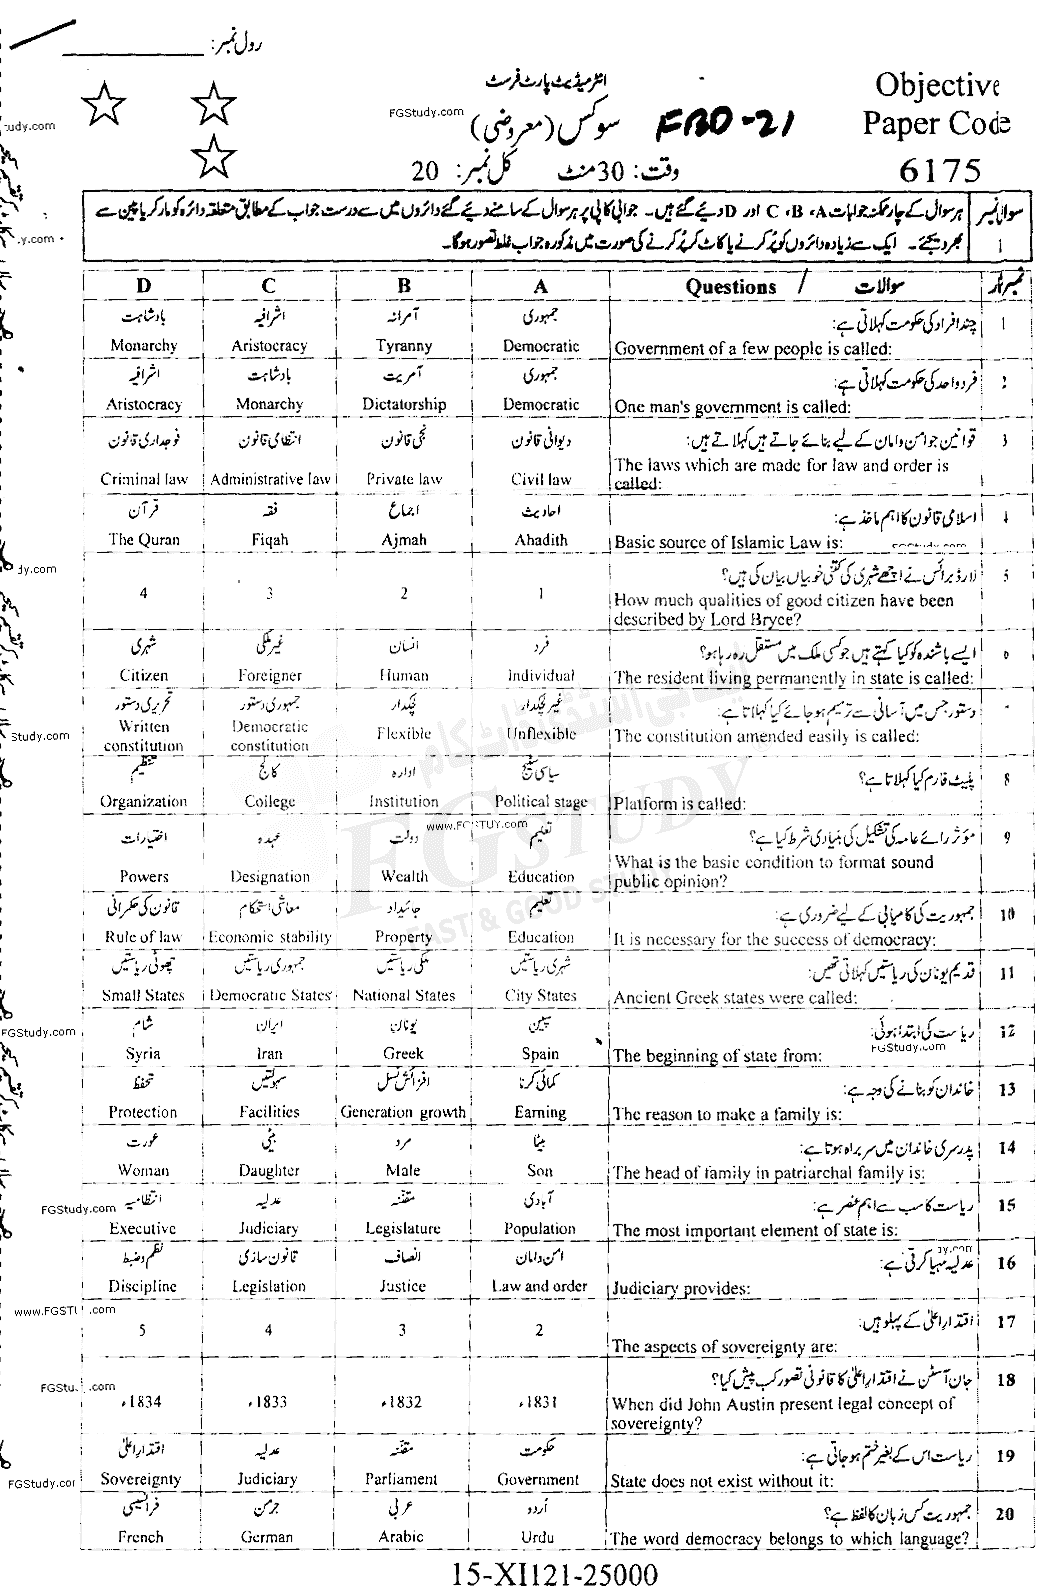 رول نمبر: ____________
انٹرمیڈیٹ پارٹ فرسٹ
Objective
FGStudy.com
سوکس (معروضی)
FBD-21
Paper Code
وقت: 30 منٹ کل نمبر: 20
6175
سوال نمبر 1
ہر سوال کے چار ممکنہ جوابات A، B، C اور D دیئے گئے ہیں۔ جوابی کاپی پر ہر سوال کے سامنے دیئے گئے دائروں میں سے درست جواب کے مطابق متعلقہ دائرہ کو مارکر یا پین سے
بھر دیجئے۔ ایک سے زیادہ دائروں کو پُر کرنے یا کاٹ کر پُر کرنے کی صورت میں مذکورہ جواب غلط تصور ہوگا۔
D C B A Questions / سوالات نمبر شمار
بادشاہت اشرافیہ آمرانہ جمہوری چند افراد کی حکومت کہلاتی ہے: 1
Monarchy Aristocracy Tyranny Democratic Government of a few people is called:
اشرافیہ بادشاہت آمریت جمہوری فرد واحد کی حکومت کہلاتی ہے: 2
Aristocracy Monarchy Dictatorship Democratic One man's government is called:
فوجداری قانون انتظامی قانون نجی قانون دیوانی قانون قوانین جو امن و امان کے لیے بنائے جاتے ہیں کہلاتے ہیں: 3
Criminal law Administrative law Private law Civil law The laws which are made for law and order is
called:
قرآن فقہ اجماع احادیث اسلامی قانون کا اہم ماخذ ہے: 4
The Quran Fiqah Ajmah Ahadith Basic source of Islamic Law is:
لارڈ برائس نے اچھے شہری کی کتنی خوبیاں بیان کی ہیں؟ 5
4 3 2 1 How much qualities of good citizen have been
described by Lord Bryce?
شہری غیر ملکی انسان فرد ایسے باشندہ کو کیا کہتے ہیں جو کسی ملک میں مستقل رہ رہا ہو؟ 6
Citizen Foreigner Human Individual The resident living permanently in state is called:
تحریری دستور جمہوری دستور لچکدار غیر لچکدار دستور جس میں آسانی سے ترمیم ہو جائے کیا کہلاتا ہے:
Written constitution Democratic constitution Flexible Unflexible The constitution amended easily is called:
تنظیم کالج ادارہ سیاسی سٹیج پلیٹ فارم کیا کہلاتا ہے؟ 8
Organization College Institution Political stage Platform is called:
www.FGSTUY.com
اختیارات عہدہ دولت تعلیم مؤثر رائے عامہ کی تشکیل کی بنیادی شرط کیا ہے؟ 9
Powers Designation Wealth Education What is the basic condition to format sound
public opinion?
قانون کی حکمرانی معاشی استحکام جائیداد تعلیم جمہوریت کی کامیابی کے لیے ضروری ہے: 10
Rule of law Economic stability Property Education It is necessary for the success of democracy:
چھوٹی ریاستیں جمہوری ریاستیں ملکی ریاستیں شہری ریاستیں قدیم یونان کی ریاستیں کہلاتی تھیں: 11
Small States Democratic States National States City States Ancient Greek states were called:
شام ایران یونان سپین ریاست کی ابتدا ہوئی: 12
FGStudy.com
Syria Iran Greek Spain The beginning of state from:
تحفظ سہولتیں افزائش نسل کمائی کرنا خاندان کو بنانے کی وجہ ہے: 13
Protection Facilities Generation growth Earning The reason to make a family is:
عورت بیٹی مرد بیٹا پدرسری خاندان میں سربراہ ہوتا ہے: 14
Woman Daughter Male Son The head of family in patriarchal family is:
انتظامیہ عدلیہ مقننہ آبادی ریاست کا سب سے اہم عنصر ہے: 15
Executive Judiciary Legislature Population The most important element of state is:
نظم و ضبط قانون سازی انصاف امن و امان عدلیہ مہیا کرتی ہے: 16
Discipline Legislation Justice Law and order Judiciary provides:
اقتدار اعلیٰ کے پہلو ہیں: 17
5 4 3 2 The aspects of sovereignty are:
جان آسٹن نے اقتدار اعلیٰ کا قانونی تصور کب پیش کیا؟ 18
1834ء 1833ء 1832ء 1831ء When did John Austin present legal concept of
sovereignty?
اقتدار اعلیٰ عدلیہ مقننہ حکومت ریاست اس کے بغیر ختم ہو جاتی ہے: 19
Sovereignty Judiciary Parliament Government State does not exist without it:
فرانسیسی جرمن عربی اُردو جمہوریت کس زبان کا لفظ ہے؟ 20
French German Arabic Urdu The word democracy belongs to which language?
15-XI121-25000